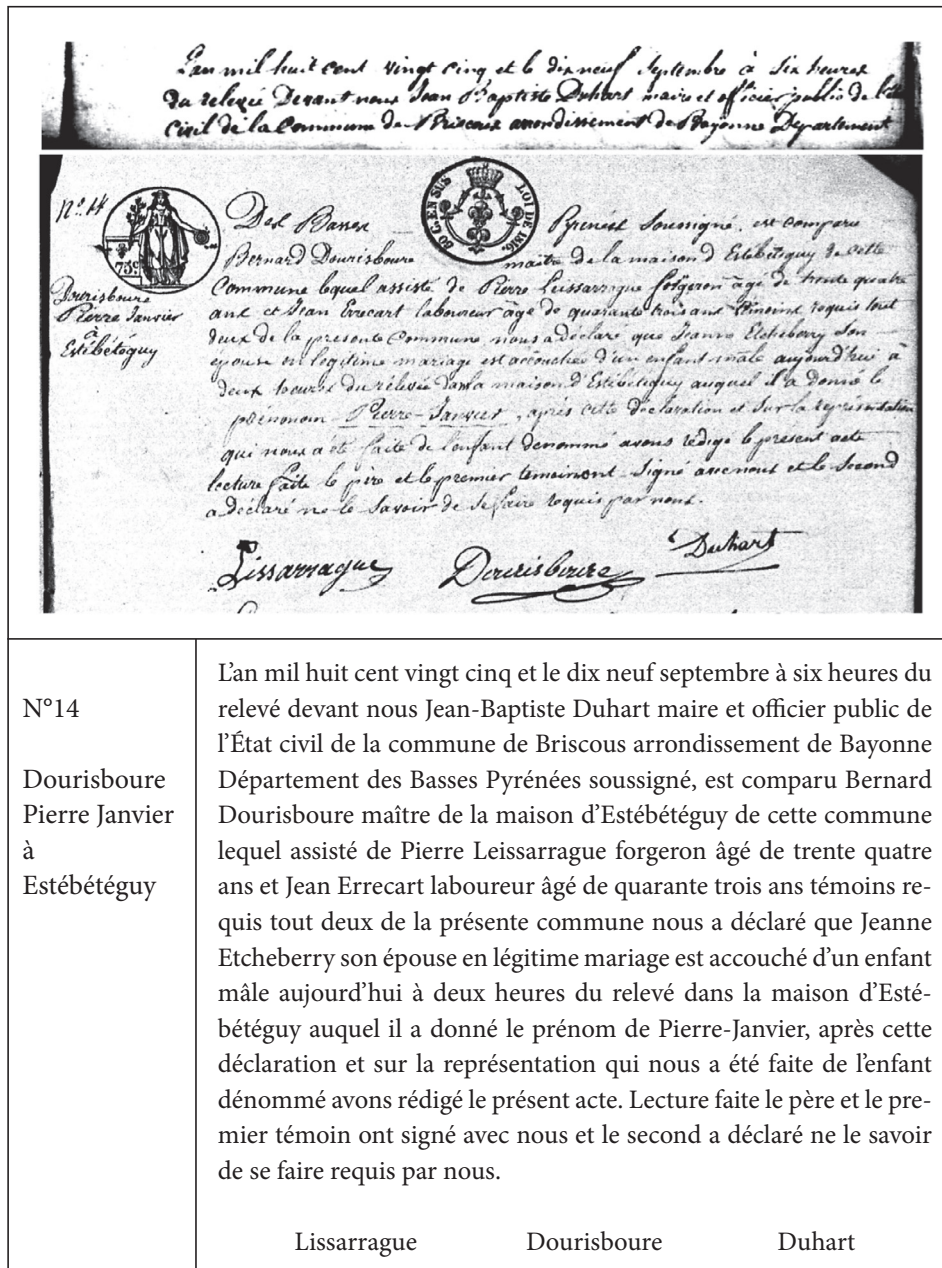 L'an mil huit cent vingt cinq et le dix neuf Septembre à Six heures
du relevée Devant nous Jean Baptiste Duhart maire et officier public de l'état
Civil de la Commune de Briscous arrondissement de Bayonne Departement
N.º 14
75c.
30 C. EN SUS
LOI DE 1816.
Des Basses Pyrenées Soussigné, est comparu
Bernard Dourisboure maître de la maison d'Estébéteguy de cette
Dourisboure
Pierre Janvier
à
Estébétéguy
Commune lequel assisté de Pierre Leissarrague forgeron âgé de trente quatre
ans et Jean Errecart laboureur âgé de quarante trois ans témoins requis tout
deux de la presente Commune, nous a déclaré que Jeanne Etcheberry Son
épouse en légitime mariage est accouchée d'un enfant mâle aujourd'hui à
deux heures du rélevée dans la maison d'Estébéteguy auquel il a donné le
prénom Pierre-Janvier, après cette déclaration et Sur la représentation
qui nous a été faite de l'enfant denommé avons redigé le present acte
lecture faite le père et le premier temoin ont Signé avec nous et le Second
a déclaré ne le Savoir de Se faire requis par nous.
Lissarrague Dourisboure Duhart
N°14
Dourisboure
Pierre Janvier
à
Estébétéguy
L'an mil huit cent vingt cinq et le dix neuf septembre à six heures du
relevé devant nous Jean-Baptiste Duhart maire et officier public de
l'État civil de la commune de Briscous arrondissement de Bayonne
Département des Basses Pyrénées soussigné, est comparu Bernard
Dourisboure maître de la maison d'Estébétéguy de cette commune
lequel assisté de Pierre Leissarrague forgeron âgé de trente quatre
ans et Jean Errecart laboureur âgé de quarante trois ans témoins re-
quis tout deux de la présente commune nous a déclaré que Jeanne
Etcheberry son épouse en légitime mariage est accouché d'un enfant
mâle aujourd'hui à deux heures du relevé dans la maison d'Esté-
bétéguy auquel il a donné le prénom de Pierre-Janvier, après cette
déclaration et sur la représentation qui nous a été faite de l'enfant
dénommé avons rédigé le présent acte. Lecture faite le père et le pre-
mier témoin ont signé avec nous et le second a déclaré ne le savoir
de se faire requis par nous.
Lissarrague Dourisboure Duhart